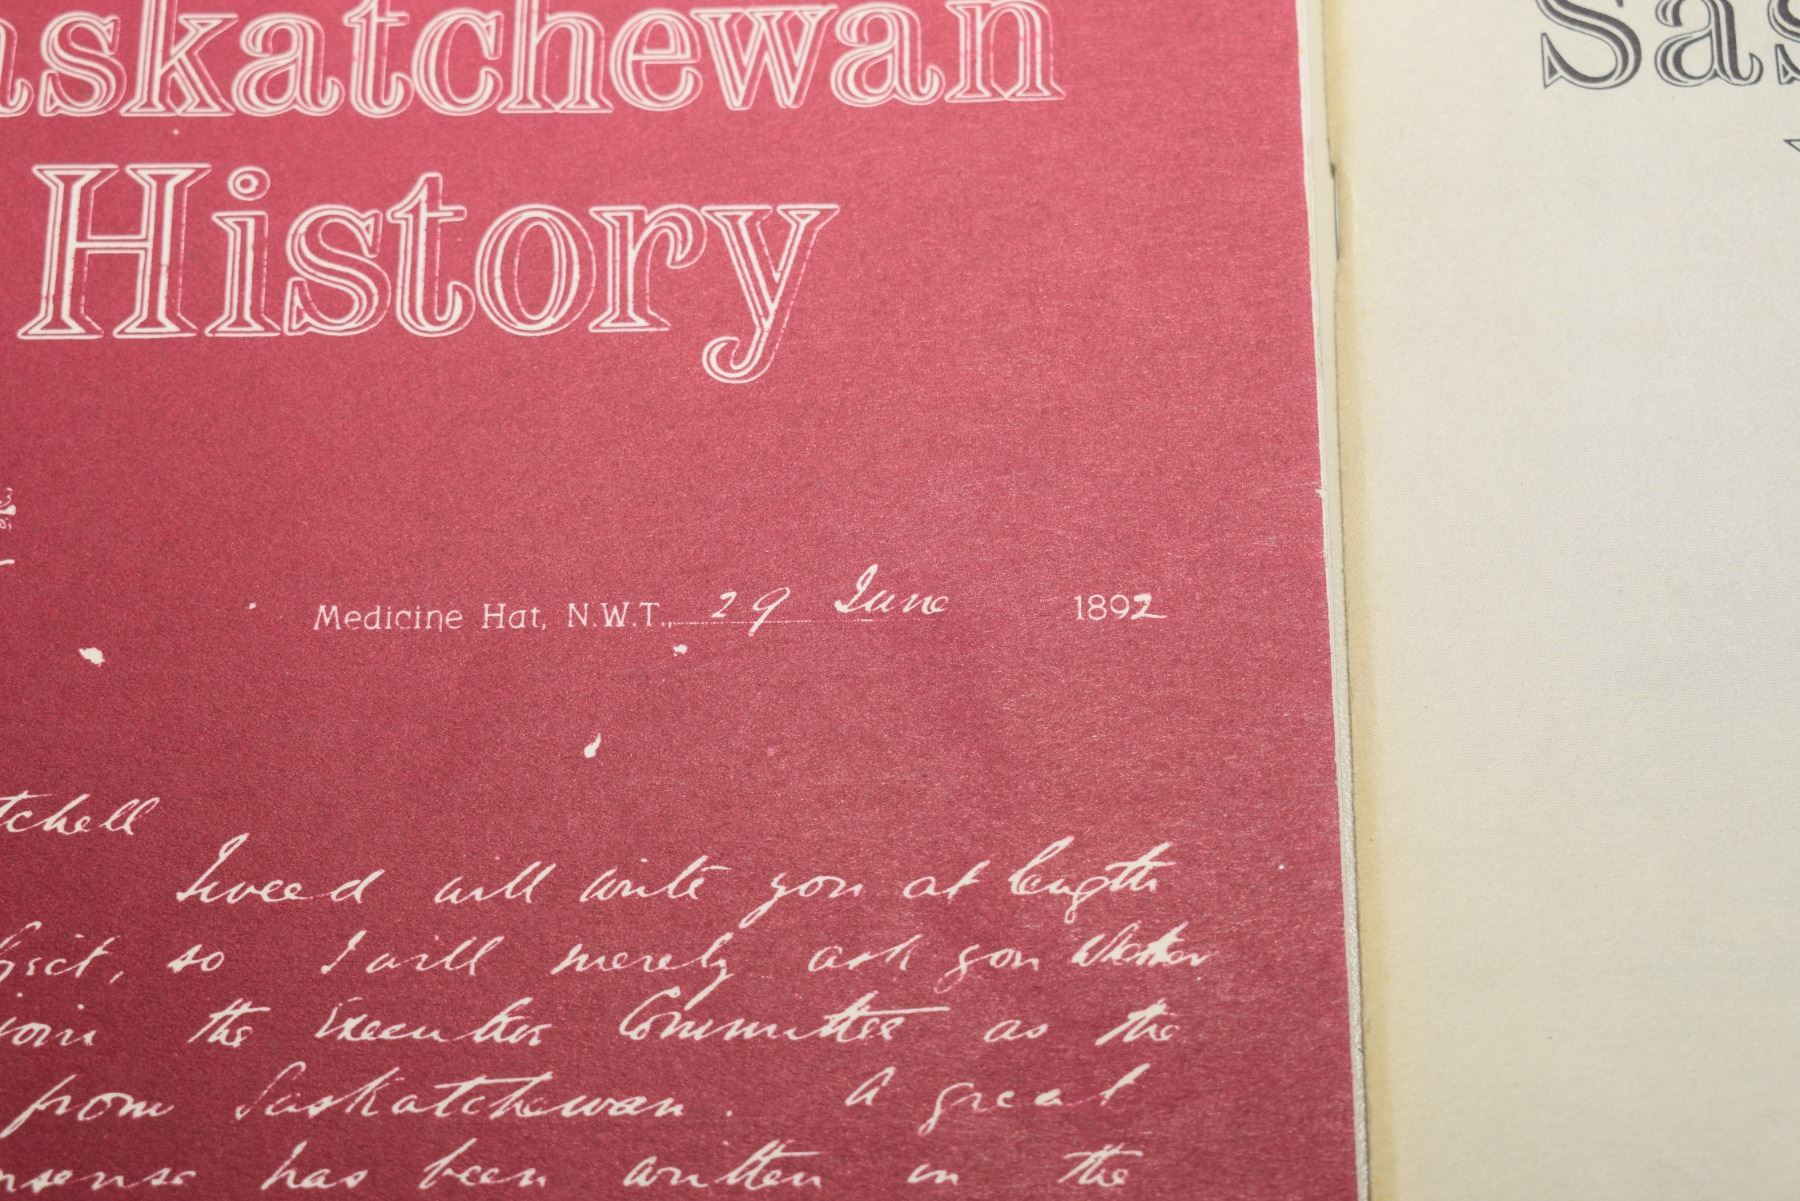 askatchewan
History
Medicine Hat, N.W.T., 29 June 1892
tchell
Tweed will write you at length
so I will merely ask you whether
join the Executive Committee as the
from Saskatchewan. A great
nsense has been written in the
Sas